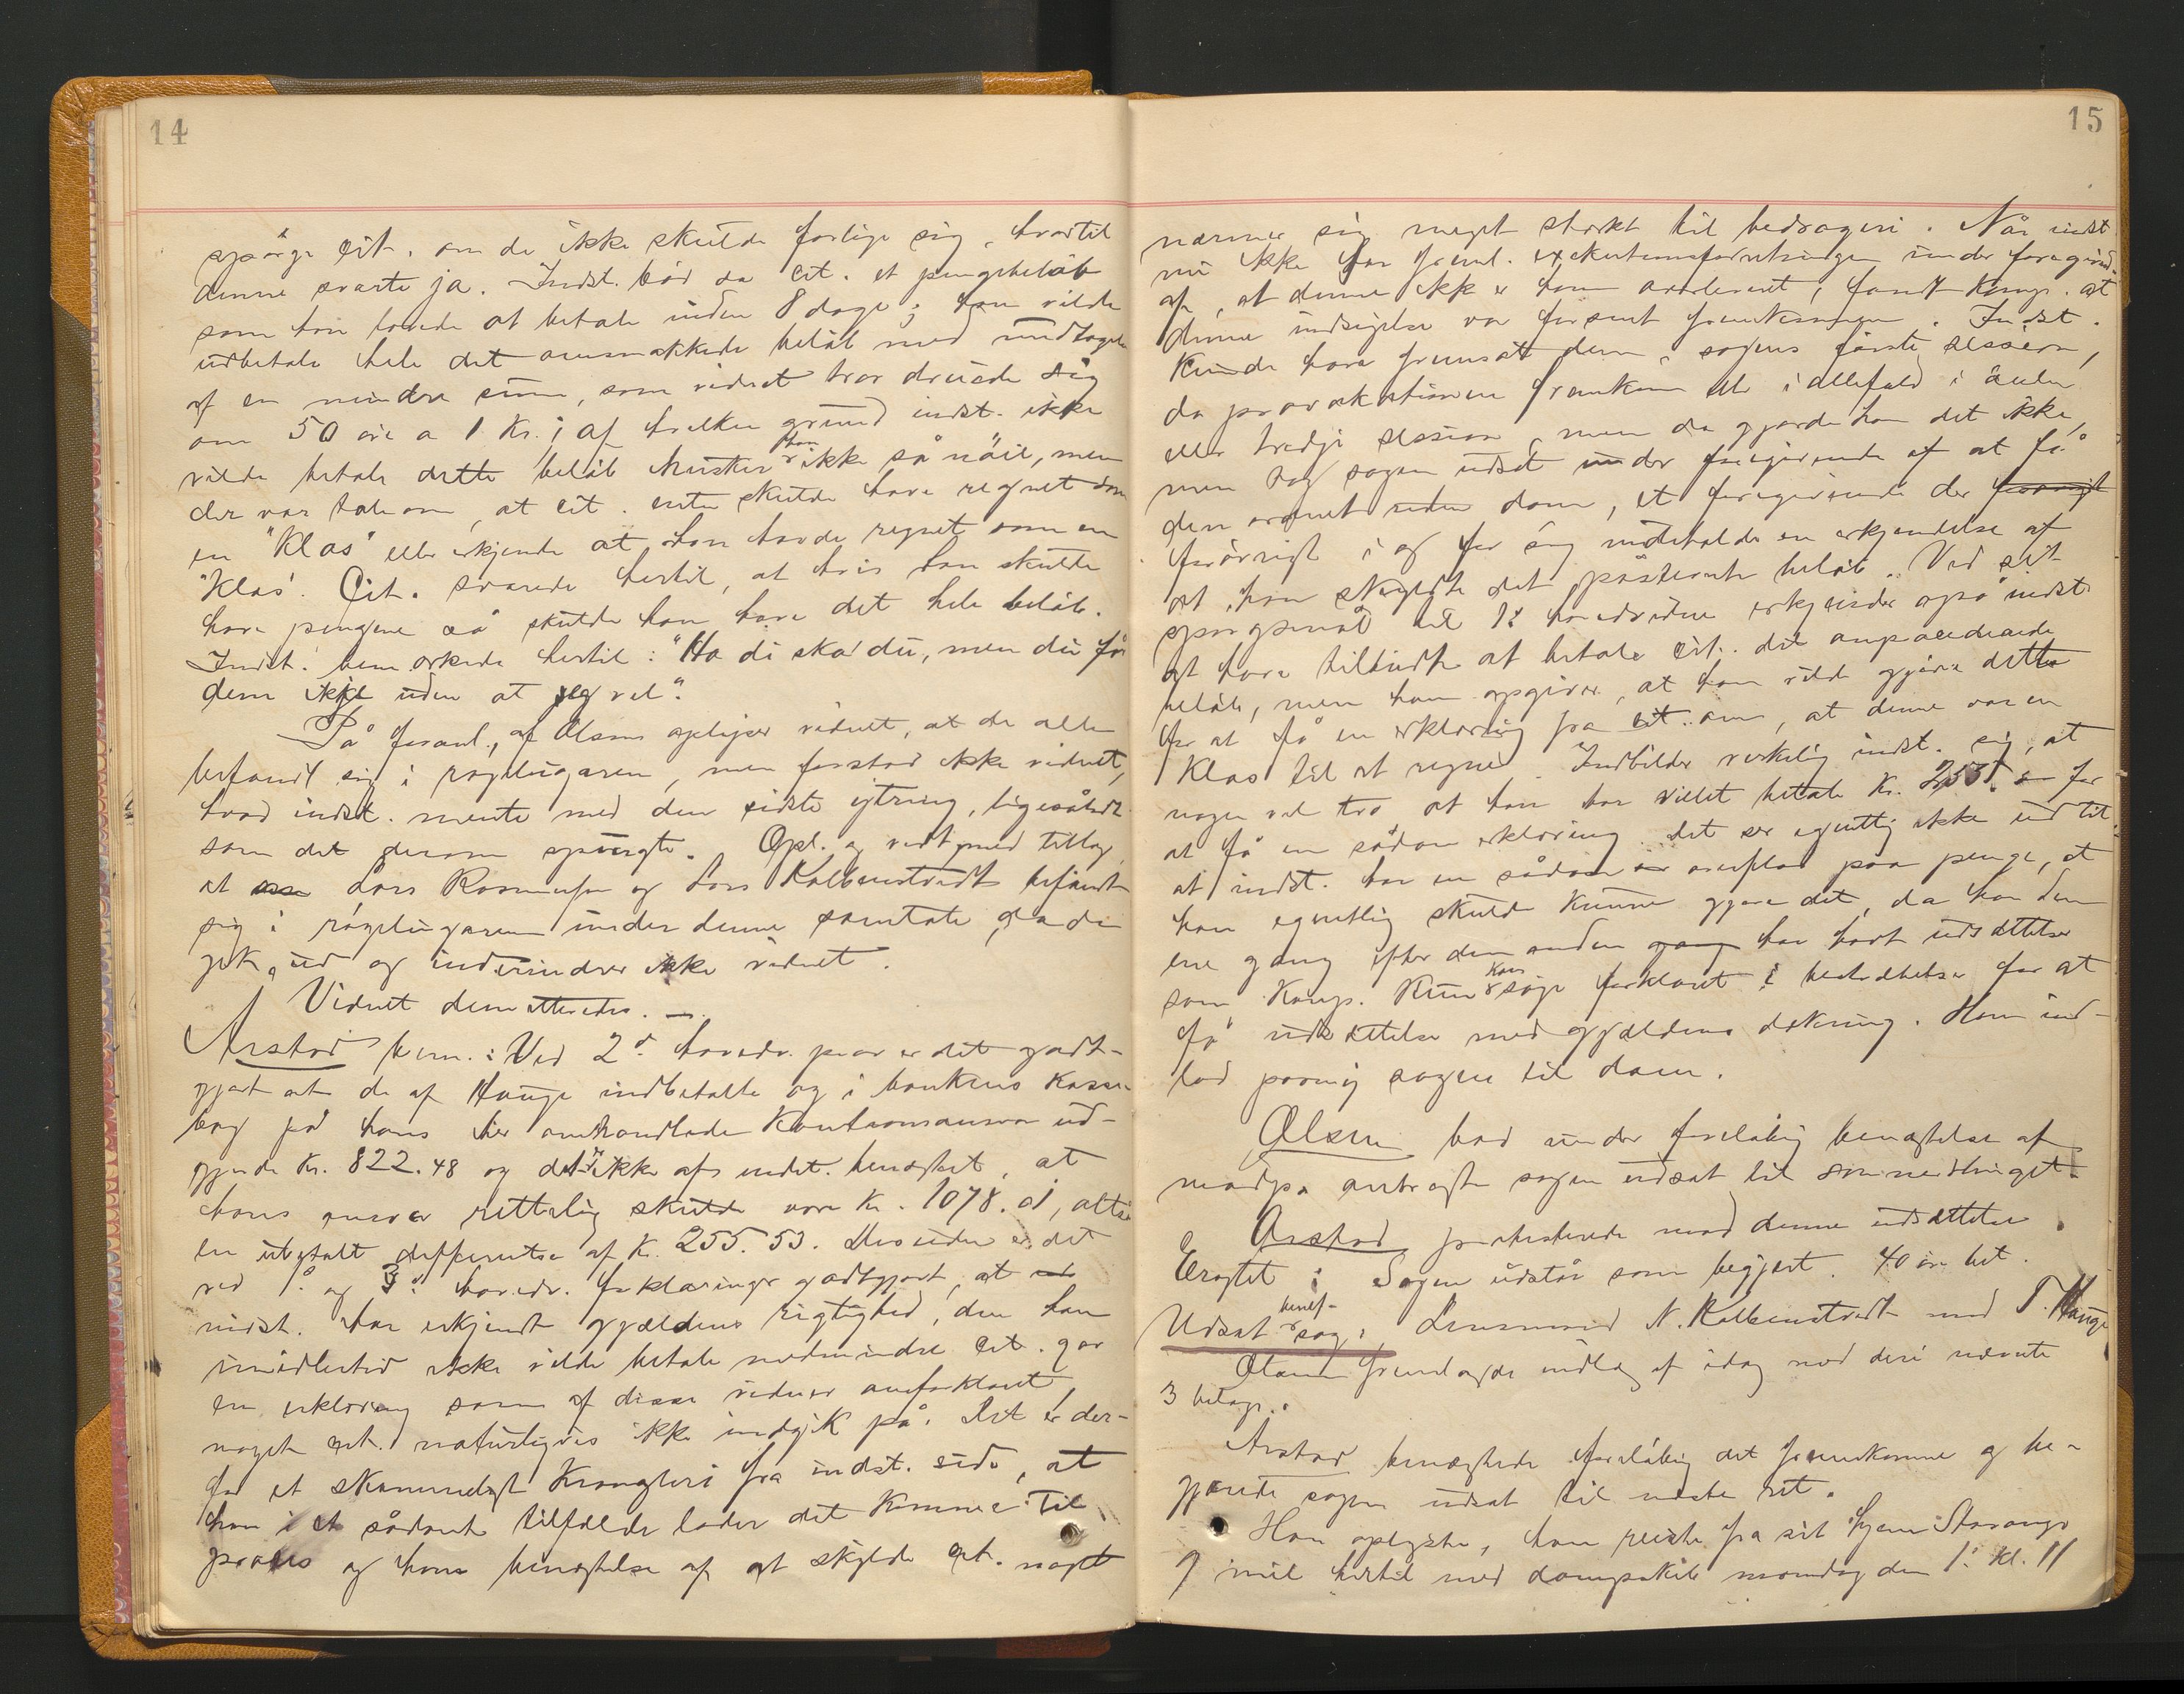 14
spørge cit. om de ikke skulde forlige sig, hvortil
denne svarte ja. Indst. bød da cit. et pengebeløb
som han lovede at betale inden 8 dage; han vilde
udbetale hele det omsnakkede beløb med undtagelse
af en mindre sum, som vidnet tror dreiede sig
om 50 øre a 1 Kr.; af hvilken grund indst. ikke
vilde betale dette beløb husker han ikke så nøie, men
der var tale om, at cit. enten skulde have regnet som
en "Klas" eller erkjende at han havde regnet som en
"Klas". Cit. svarede hertil, at hvis han skulde
have pengene så skulde han have det hele beløb.
Indst. bemærkede hertil: "Ha di ska' du, men du får
dem ikje uden at jeg vel".
På foranl. af Olsen oplyser vidnet, at de alle
befandt sig i røgelugaren, men forstod ikke vidnet,
hvad indst. mente med den sidste ytring, ligesålidt
som det derom spurgte. Opl. og vedt. med tillæg
at Lars Rasmussen og Lars Kolbenstvedt befandt
sig i røgelugaren under denne samtale, da de
gik ud og ind erindrer ikke vidnet.
Vidnet demitteredes. —
Årstad bem.: Ved 2d hovedv. prov er det godt-
gjort at de af Hauge indbetalte og i bankens kasse-
bog på hans her omhandlede Kautionsansvar ud-
gjorde Kr. 822.48 og det er ikke af indst. benægtet, at
hans ansvar rettelig skulde være Kr. 1078.01, altså
en ubetalt differentse af Kr. 255.53. Desuden er det
ved 1ste og 3d hovedv. forklaringer godtgjort, at
indst. har erkjendt gjældens rigtighed, den han
imidlertid ikke vilde betale medmindre cit. gav
en erklæring som af disse vidner omforklaret,
noget cit. naturligvis ikke indgik på. Det er der-
for et skammeligt Krangleri fra indst. side, at
han i et sådant tilfælde lader det komme til
proces og hans benægtelse af at skylde cit. noget
15
nærmer sig meget sterkt til bedrageri. Når indst.
nu ikke får freml. exekutionsforretningen under foregivende
af, at denne ikke er ham overleveret, fandt komp. at
denne indsigelse var for sent fremkommen. Indst.
kunde have fremsat den i sagens første session,
da provokationen fremkom eller i allefald i anden
eller tredje session, men da gjorde han det ikke,
men tog sagen udsat under foregivende af at få
den ordnet uden dom, et foregivende der
forøvrigt i og for sig indeholder en erkjendelse af
at han skyldte det påstævnte beløb. Ved sit
spørgsmål til 1ste hovedvidne erkjender også indst.
at have tilbudt at betale cit. det omprocederede
beløb, men han opgiver, at han vilde gjøre dette
for at få en erklæring fra cit. om, at denne var en
Klas til at regne. Indbilder virkelig indst. sig, at
nogen vil tro at han har villet betale Kr. 255 for
at få en sådan erklæring. Det ser egentlig ikke ud til,
at indst. har en sådan overflod paa penge, at
han egentlig skulde kunne gjøre det, da han den
ene gang efter den anden har havt udsættelse
som komp. kun kan søge forklaret i bestræbelse for at
få udsættelse med gjældens dækning. Han ind-
lod paany sagen til dom.
Olsen bad under foreløbig benægtelse af
modp. anbragte sagen udsat til sommerthinget.
Årstad protesterede mod denne udsættelse.
Eragtet: Sagen udstår som begjært. 40 øre bet.
Udsat benef. sag: Lensmand N. Kolbenstvedt mod T. Hauge
Olsen fremlagde indlæg af idag med deri nævnte
3 bilage.
Årstad benægtede foreløbig det fremkomne og be-
gjærede sagen udsat til næste ret.
Han oplyste, han reiste fra sit hjem Stavanger
9 mil hertil med dampskib mandag den 1ste kl. 11